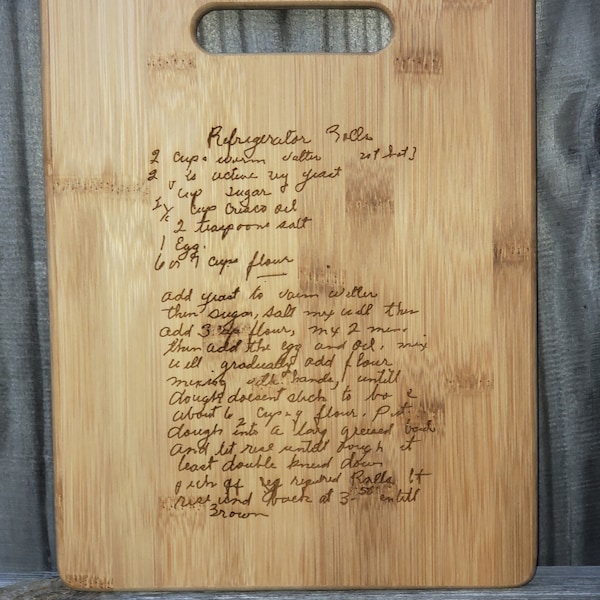 Refrigerator Rolls
2 cups warm watter not hot)
2 active dry yeast
cup sugar
cup Crisco oil
2 teaspoons salt
1 Egg.
6 or 7 cups flour
add yeast to warm watter
then sugar, salt mix well then
add 3 flour, mix 2 min.
then add the egg and oil, mix
well. gradually add flour
mixing with hands, untill
dough doesent stick to
about 6 cups of flour. Put
dough into a larg greased
and let rise untill dough
least double knead down
required Rolls let
rise and back at 3 untill
Brown